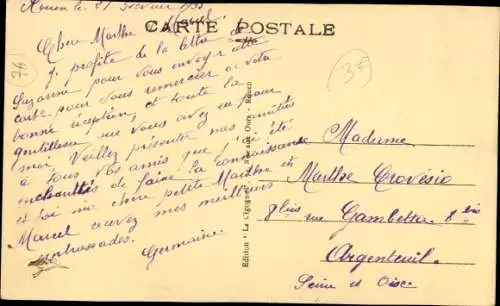 Rouen le 21 février 1933
CARTE POSTALE
Chers Marthe et Marcel
Je profite de la lettre de
Suzanne pour vous envoyer cette
carte pour vous remercier de votre
bonne réception, et toute la
gentillesse que vous avez eu pour
moi. Veillez présenter mes amitiés
à tous vos amis que j'ai été
enchantée de faire la connaissance
et toi ma chère petite Marthe et
Marcel recevez mes meilleurs
embrassades.
Germaine.
76
3
Edition "La Cigogne" Rue aux Ours - Rouen
Madame
Marthe Crovésio
rue Gambetta 8 bis
Argenteuil.
Seine et Oise